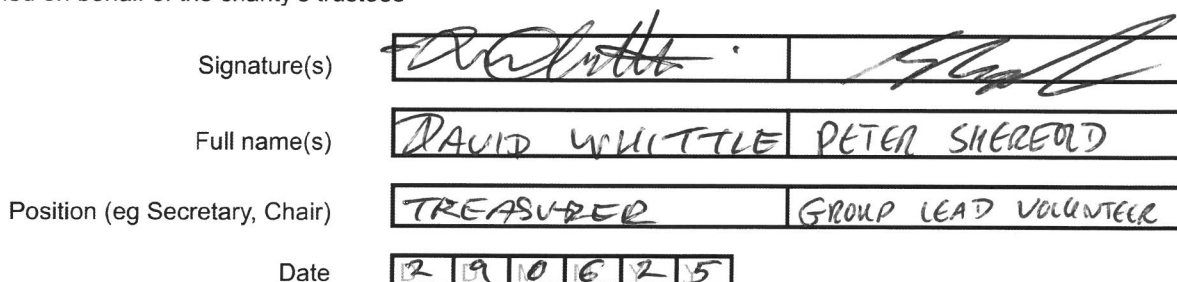 on behalf of the charity's trustees
Signature(s)
Full name(s) DAVID WHITTLE PETER SHEREFORD
Position (eg Secretary, Chair) TREASURER GROUP LEAD VOLUNTEER
Date 2 9 0 6 2 5